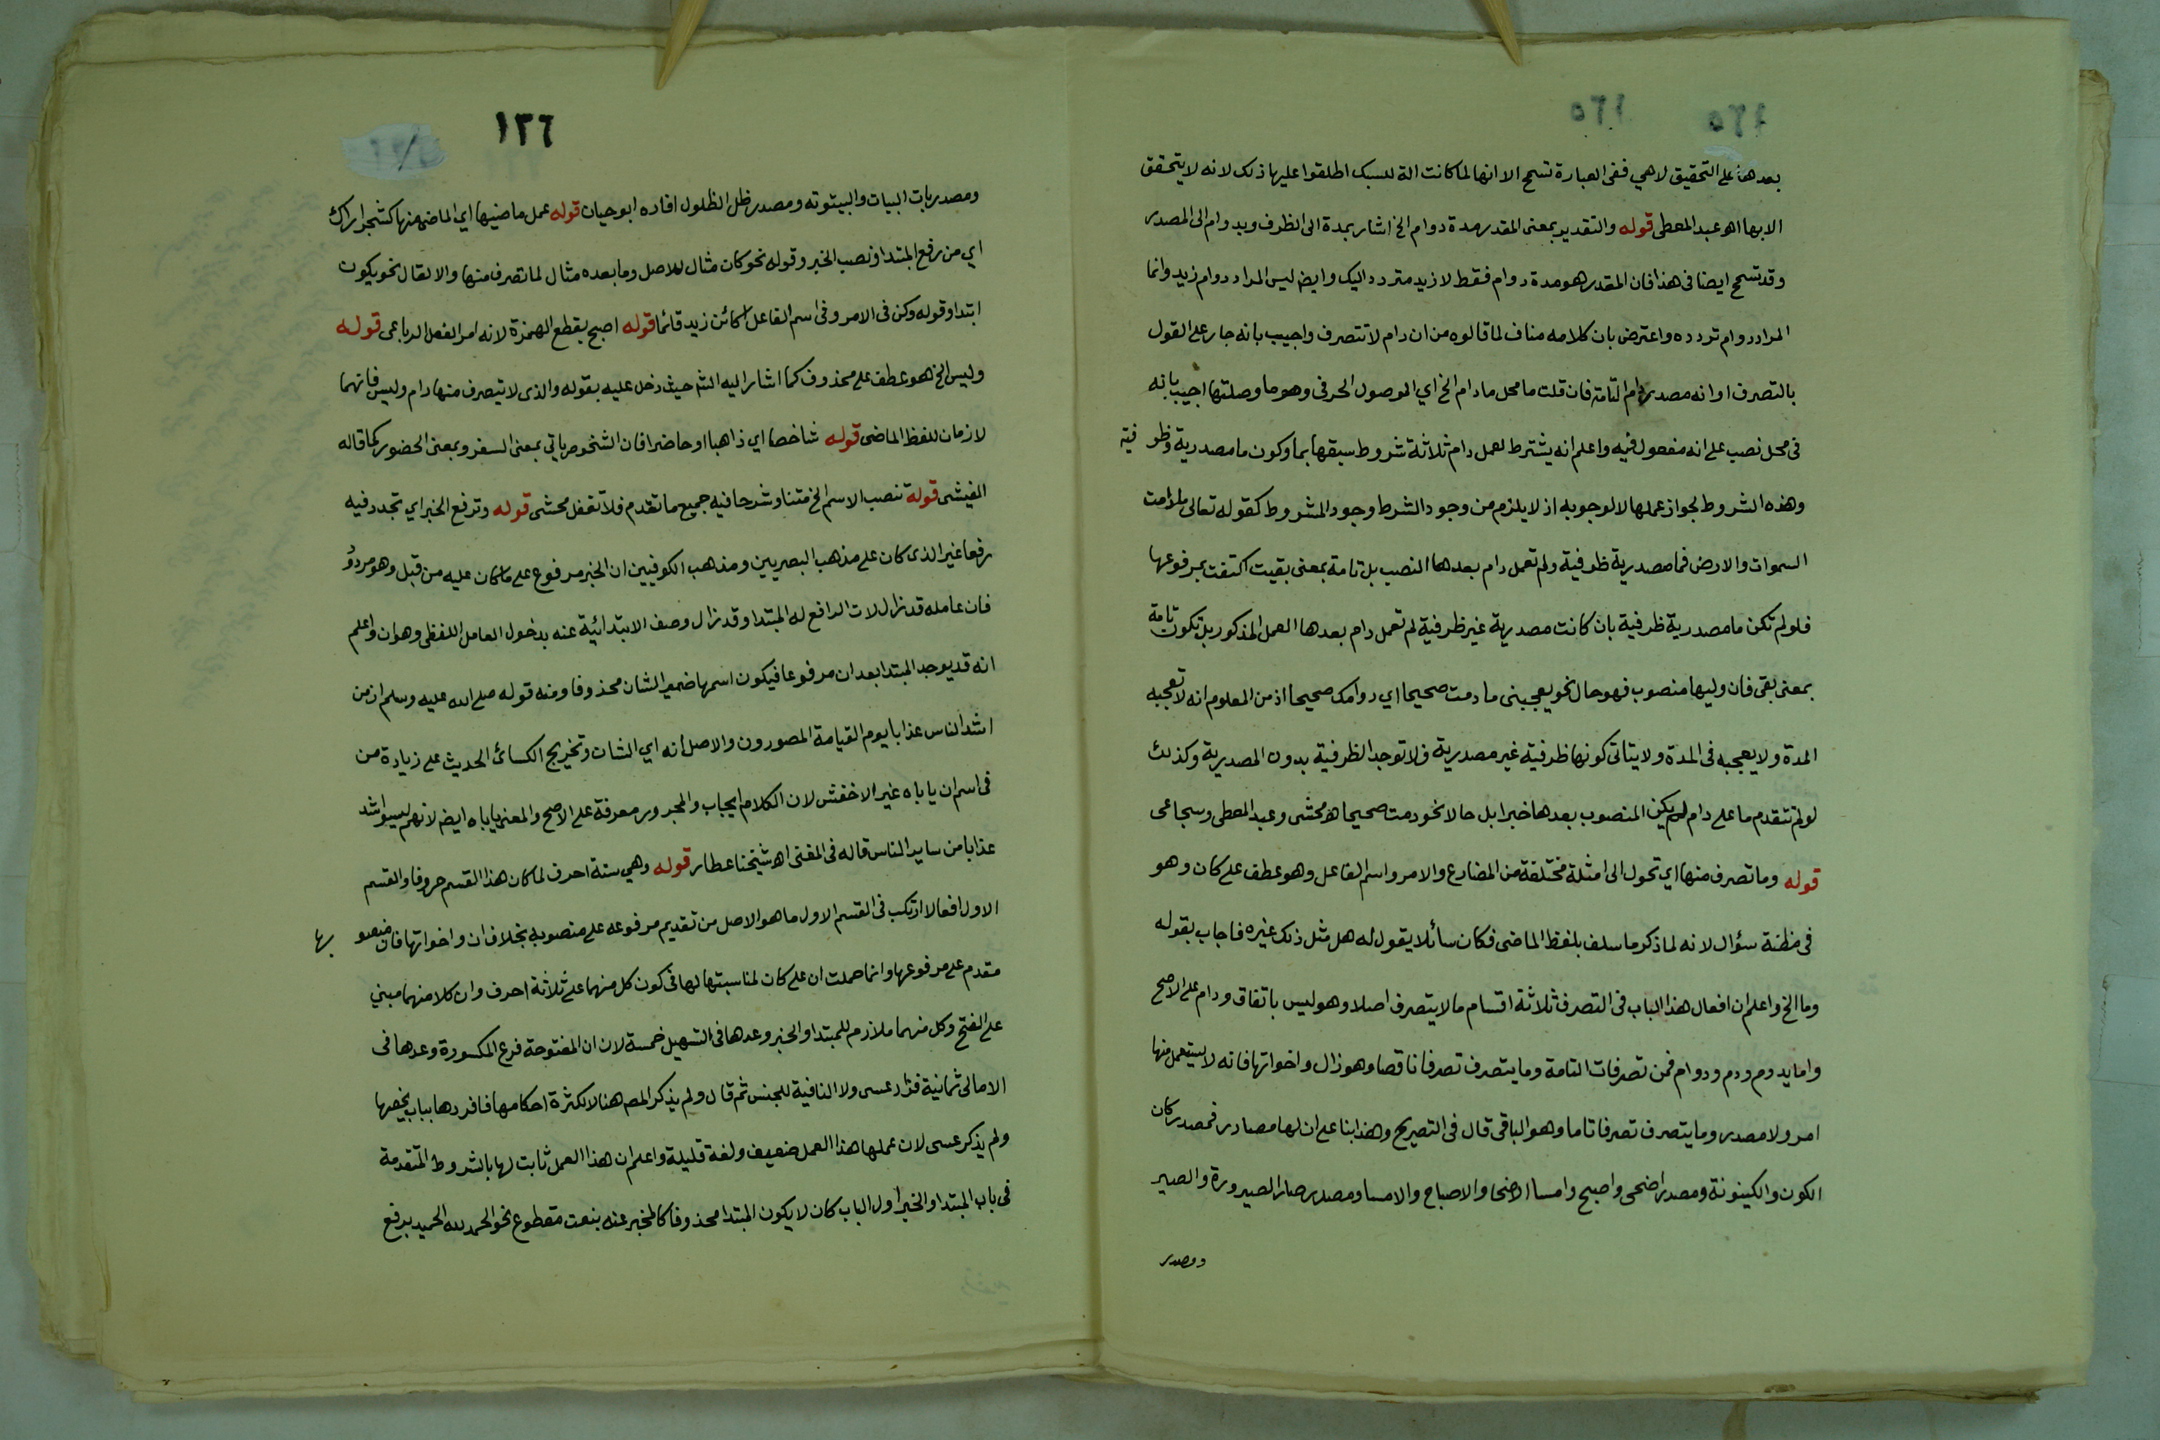 ١٢٥ ١٢٥
بعدها على التحقيق لا هي ففي العبارة تسمح الا انها لما كانت الة للسبك اطلقوا عليها ذلك لانه لا يتحقق
الا بها اه عبد المعطى قوله والتقدير بمعنى المقدر مدة دوام الخ اشار بمدة الى الظرف وبدوام الى المصدر
وقد تسمح ايضا فى هذا فان المقدر هو مدة دوام فقط لا زيد متردد اليك وايضا ليس المراد دوام زيد وانما
المراد دوام تردده واعترض بان كلامه مناف لما قالوه من ان دام لا تتصرف واجيب بانه جار على القول
بالتصرف او انه مصدر دام التامة فان قلت ما محل مادام الخ اي الموصول الحرفى وهو ما وصلتها اجيب بانه
فى محل نصب على انه مفعول فيه واعلم انه يشترط لعمل دام ثلاثة شروط سبقها بما وكون ما مصدرية وظرفية
وهذه الشروط لجواز عملها لا لوجوبه اذ لا يلزم من وجود الشرط وجود المشروط كقوله تعالى مادامت
السموات والارض فما مصدرية ظرفية ولم تعمل دام بعدها النصب بل تامة بمعنى بقيت اكتفت بمرفوعها
فلو لم تكن ما مصدرية ظرفية بان كانت مصدرية غير ظرفية لم تعمل دام بعدها العمل المذكور بل تكون تامة
بمعنى بقى فان وليها منصوب فهو حال نحو يعجبنى ما دمت صحيحا اي دوامك صحيحا اذ من المعلوم انه لا تعجبه
المدة ولا يعجبه فى المدة ولا يتاتى كونها ظرفية غير مصدرية فلا توجد الظرفية بدون المصدرية وكذلك
لو لم تتقدم ما على دام لم يكن المنصوب بعدها خبرا بل حالا نحو دمت صحيحا اه محشى وعبد المعطى وسجاعى
قوله وما تصرف منها اي تحول الى امثلة مختلفة من المضارع والامر واسم الفاعل وهو عطف على كان وهو
فى مظنة سؤال لانه لما ذكر ما سلف بلفظ الماضى فكان سائلا يقول له هل مثل ذلك غيره فاجاب بقوله
وما الخ واعلم ان افعال هذا الباب فى التصرف ثلاثة اقسام ما لا يتصرف اصلا وهو ليس باتفاق ودام على الاصح
واما يدوم ودم ودوام فمن تصرفات التامة وما يتصرف تصرفا ناقصا وهو زال واخواتها فانه لا يستعمل منها
امر ولا مصدر وما يتصرف تصرفا تاما وهو الباقى قال فى التصريح وهذا بنا على ان لها مصادر فمصدر كان
الكون والكينونة ومصدر اضحى واصبح وامسا الاضحا والاصباح والامسا ومصدر صار الصيرورة والصير
ومصدر
١٢٦
ومصدر بات البيات والبيتوته ومصدر ظل الظلول افاده ابوحيان قوله عمل ماضيها اي الماضى منها كشجر اراك
اي من رفع المبتدا ونصب الخبر وقوله نحو كان مثال للاصل وما بعده مثال لما تصرف منها والا لقال نحو يكون
ابتدا وقوله وكن فى الامر وفى اسم الفاعل كائن زيد قائما قوله اصبح بقطع الهمزة لانه امر الفعل الرباعى قوله
وليس الخ هو عطف على محذوف كما اشار اليه الشم حيث دخل عليه بقوله والذى لا يتصرف منها دام وليس فانهما
لازمان للفظ الماضى قوله شاخصا اي ذاهبا او حاضرا فان الشخوص ياتي بمعنى السفر وبمعنى الحضور كما قاله
الفيشى قوله تنصب الاسم الخ متنا وشرحا فيه جميع ما تقدم فلا تغفل محشى قوله وترفع الخبر اي تجدد فيه
رفعا غير الذى كان على مذهب البصريين ومذهب الكوفيين ان الخبر مرفوع على ما كان عليه من قبل وهو مردود
فان عامله قد زال لان الرافع له المبتدا وقد زال وصف الابتدائية عنه بدخول العامل اللفظى وهو ان واعلم
انه قد يوجد المبتدا بعد ان مرفوعا فيكون اسمها ضمير الشان محذوفا ومنه قوله صلى الله عليه وسلم ان من
اشد الناس عذابا يوم القيامة المصورون والاصل انه اي الشان وتخريج الكسائى الحديث على زيادة من
فى اسم ان ياباه غير الاخفش لان الكلام ايجاب والمجرور معرفة على الاصح والمعنى ياباه ايضا لانهم ليسوا اشد
عذابا من ساير الناس قاله فى المغنى اه شيخنا عطار قوله وهي ستة احرف لما كان هذا القسم حروفا والقسم
الاول افعالا ارتكب فى القسم الاول ما هو الاصل من تقديم مرفوعه على منصوبه بخلاف ان واخواتها فان منصوبها
متقدم على مرفوعها وانما حملت ان على كان لمناسبتها لها فى كون كل منهما على ثلاثة احرف وان كلا منهما مبني
على الفتح وكل منهما ملازم للمبتدا والخبر وعدها فى التسهيل خمسة لان ان المفتوحة فرع المكسورة وعدها فى
الامالى ثمانية فزاد عسى ولا النافية للجنس ثم قال ولم يذكر المصم هنا لا لكثرة احكامها فافردها بباب يخصها
ولم يذكر عسى لان عملها هذا العمل ضعيف ولغة قليلة واعلم ان هذا العمل ثابت لها بالشروط المتقدمة
فى باب المبتدا والخبر اول الباب كان لا يكون المبتدا محذوفا كالمخبر عنه بنعت مقطوع نحو الحمد لله الحميد برفع